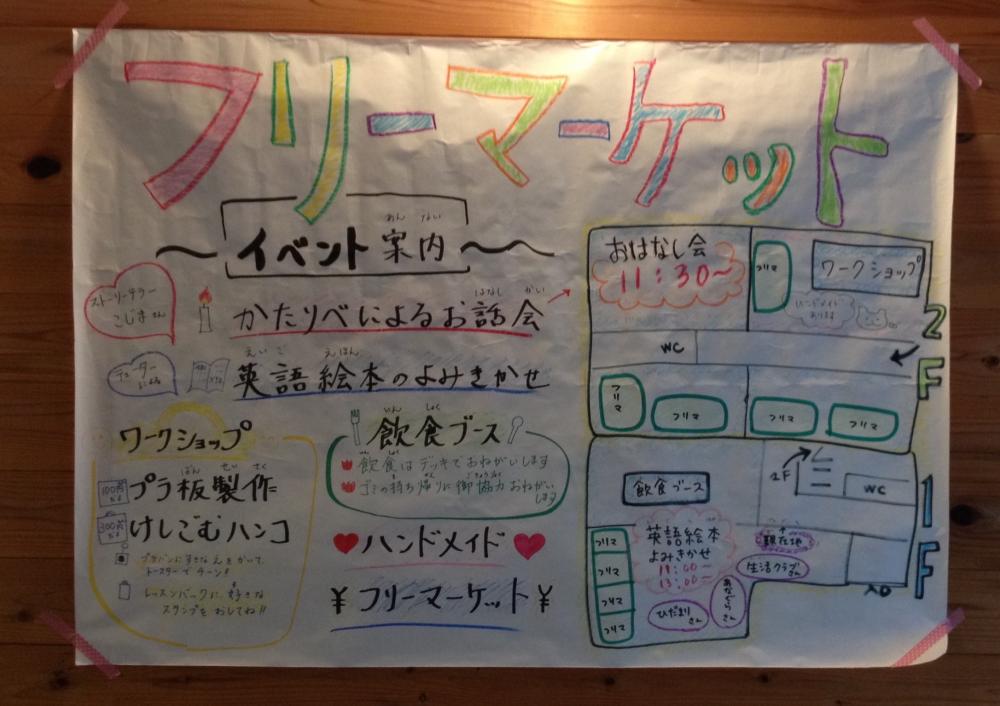 フリーマーケット
～イベント案内～
あん ない
ストーリーテラー
こじまさん
かたりべによるお話会
はなし かい
チューター
による
英語絵本のよみきかせ
えいご えほん
ワークショップ
100円
だよ
プラ板製作
ばん せい さく
300円
だよ
けしごむハンコ
プラバンにすきなえをかいて、
トースターでチーン!
レッスンバックに、好きな
スタンプをおしてね!!
飲食ブース
いん しょく
飲食はデッキでおねがいします
ゴミの持ち帰りに御協力おねがい
します
♥ハンドメイド♥
¥フリーマーケット¥
おはなし会
11:30～
フリマ
ワークショップ
ハンドメイド
あります
2F
WC
フリマ
フリマ
フリマ
フリマ
2F
WC
飲食ブース
1F
フリマ
フリマ
フリマ
フリマ
英語絵本
よみきかせ
11:00～
13:00～
現在地
生活クラブさん
あなぐらさん
ひだまりさん
入口